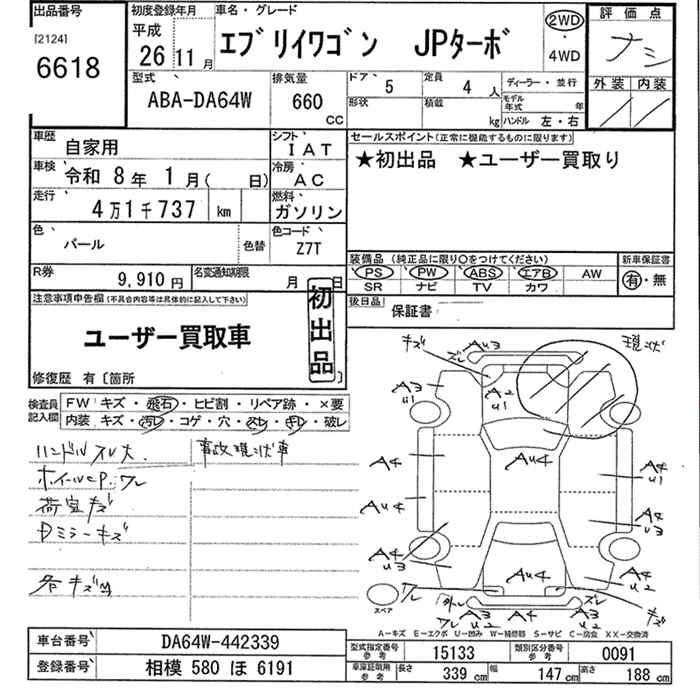 出品番号
[2124]
6618
初度登録年月
平成
26 11月
車名・グレード
エブリイワゴン JPターボ
2WD
・
4WD
評価点
ナシ
外装 内装
型式
ABA-DA64W
排気量
660
CC
ドア 5
形状
定員 4 人
積載 kg
ディーラー・並行
モデル年式 年
ハンドル 左・右
車歴 自家用
シフト IAT
車検 令和 8年 1月( 日)
冷房 AC
走行 4万1千737 km
燃料 ガソリン
色 パール
色替
色コード Z7T
R券 9,910円
名変通知期限 月 日
セールスポイント(正常に機能するものに限ります)
★初出品 ★ユーザー買取り
装備品(純正品に限り○をつけてください)
PS PW ABS エアB AW
SR ナビ TV カワ
新車保証書
有・無
後日品
保証書
注意事項申告欄(不具合内容等は具体的に記入して下さい)
ユーザー買取車
初出品
修復歴 有〔箇所
検査員記入欄
FW キズ・飛石・ヒビ割・リペア跡・×要
内装 キズ・汚レ・コゲ・穴・スレ・キレ・破レ
ハンドルスレ大
事故現状車
ホイールC.P.ワレ
荷室キズ
Dミラーキズ
各キズ凹
キズ
ズレ
AU3
現状
A3
U1
A2
U1
A4
AU4
A4
U1
AU4
A4
U3
A4
U3
AU4
A4
U2
スペア
ワレ
外レ
ワレ
A3
U2
A4
ズレ
A3
U2
キズ
A-キズ E-エクボ U-凹み W-補修跡 S-サビ C-腐食 XX-交換済
車台番号 DA64W-442339
登録番号 相模 580 ほ 6191
型式指定番号 参考 15133
類別区分番号 参考 0091
車庫証明用 参考 長さ 339 cm 幅 147 cm 高さ 188 cm